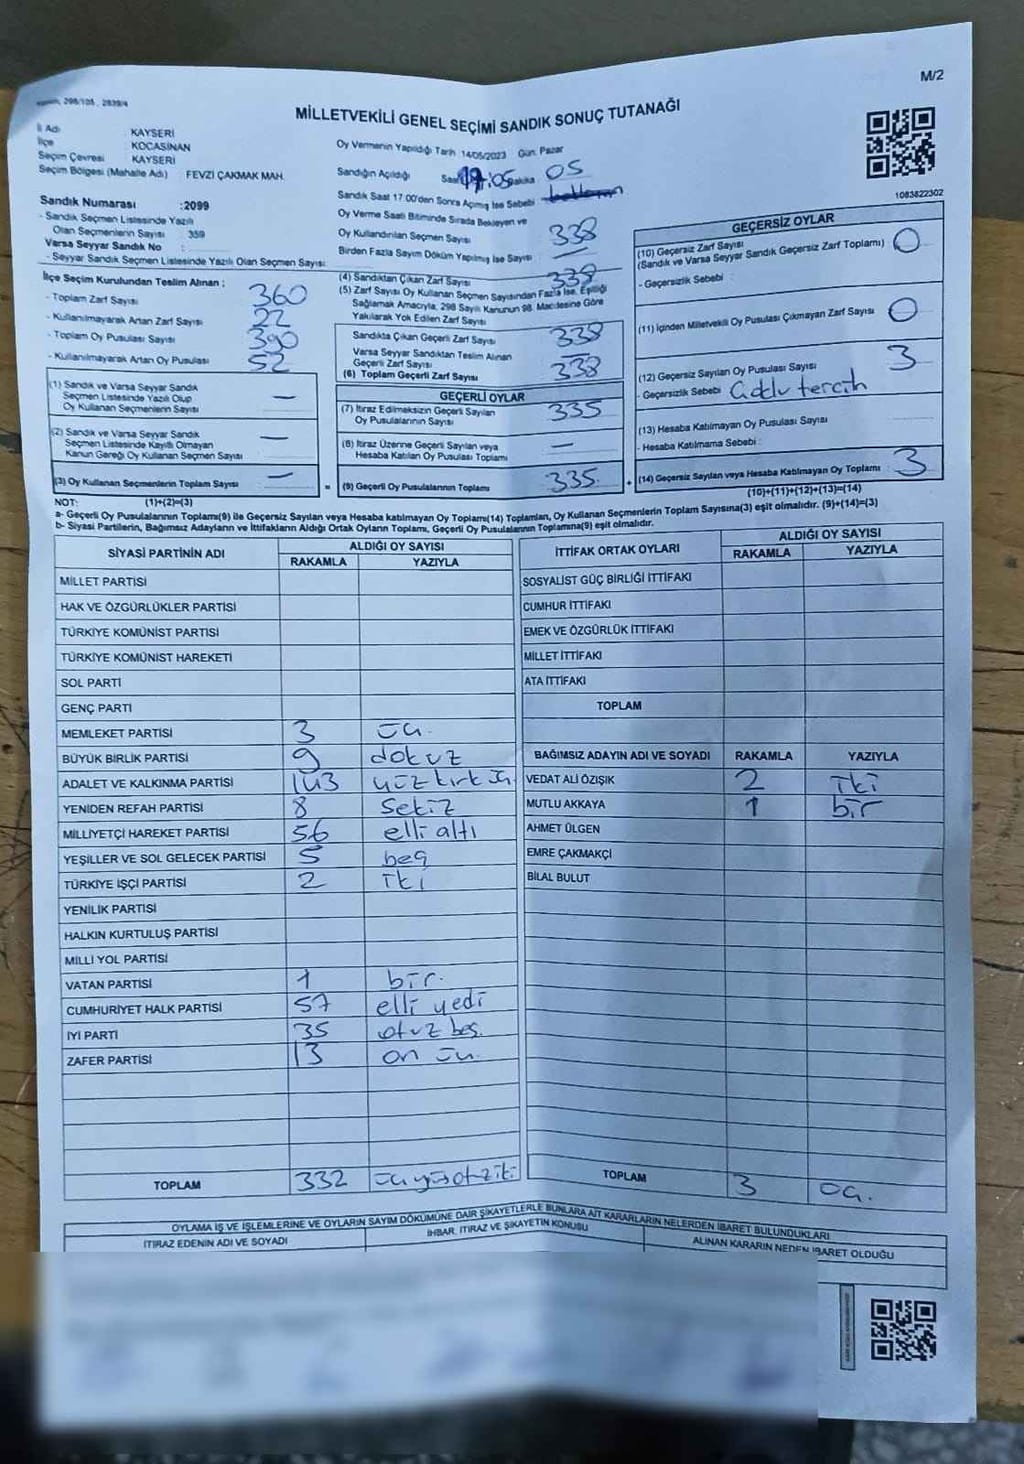 M/2
298/105, 2839/4
MİLLETVEKİLİ GENEL SEÇİMİ SANDIK SONUÇ TUTANAĞI
İl Adı : KAYSERİ
İlçe : KOCASİNAN
Seçim Çevresi : KAYSERİ
Seçim Bölgesi (Mahalle Adı) : FEVZİ ÇAKMAK MAH.
Sandık Numarası :2099
- Sandık Seçmen Listesinde Yazılı
Olan Seçmenlerin Sayısı : 359
Varsa Seyyar Sandık No :
- Seyyar Sandık Seçmen Listesinde Yazılı Olan Seçmen Sayısı:
Oy Vermenin Yapıldığı Tarih :14/05/2023 Gün: Pazar
Sandığın Açıldığı Saat 17:05 Dakika 05
Sandık Saat 17.00'den Sonra Açımış İse Sebebi
Oy Verme Saati Bitiminde Sırada Bekleyen ve
Oy Kullandırılan Seçmen Sayısı 338
Birden Fazla Sayım Döküm Yapılmış İse Sayısı —
1083822302
İlçe Seçim Kurulundan Teslim Alınan ;
- Toplam Zarf Sayısı 360
- Kullanılmayarak Artan Zarf Sayısı 22
- Toplam Oy Pusulası Sayısı 390
- Kullanılmayarak Artan Oy Pusulası 52
(1) Sandık ve Varsa Seyyar Sandık
Seçmen Listesinde Yazılı Olup
Oy Kullanan Seçmenlerin Sayısı —
(2) Sandık ve Varsa Seyyar Sandık
Seçmen Listesinde Kayıtlı Olmayan
Kanun Gereği Oy Kullanan Seçmen Sayısı —
(3) Oy Kullanan Seçmenlerin Toplam Sayısı —
(4) Sandıktan Çıkan Zarf Sayısı 338
(5) Zarf Sayısı Oy Kullanan Seçmen Sayısından Fazla İse, Eşitliği
Sağlamak Amacıyla, 298 Sayılı Kanunun 98. Maddesine Göre
Yakılarak Yok Edilen Zarf Sayısı
Sandıkta Çıkan Geçerli Zarf Sayısı 338
Varsa Seyyar Sandıktan Teslim Alınan
Geçerli Zarf Sayısı —
(6) Toplam Geçerli Zarf Sayısı 338
GEÇERLİ OYLAR
(7) İtiraz Edilmeksizin Geçerli Sayılan
Oy Pusulalarının Sayısı 335
(8) İtiraz Üzerine Geçerli Sayılan veya
Hesaba Katılan Oy Pusulası Toplamı —
= (9) Geçerli Oy Pusulalarının Toplamı 335
GEÇERSİZ OYLAR
(10) Geçersiz Zarf Sayısı
(Sandık ve Varsa Seyyar Sandık Geçersiz Zarf Toplamı) 0
- Geçersizlik Sebebi :
(11) İçinden Milletvekili Oy Pusulası Çıkmayan Zarf Sayısı 0
(12) Geçersiz Sayılan Oy Pusulası Sayısı 3
- Geçersizlik Sebebi : Çoklu tercih
(13) Hesaba Katılmayan Oy Pusulası Sayısı
- Hesaba Katılmama Sebebi :
+ (14) Geçersiz Sayılan veya Hesaba Katılmayan Oy Toplamı 3
NOT: (1)+(2)=(3)
(10)+(11)+(12)+(13)=(14)
a- Geçerli Oy Pusulalarının Toplamı(9) ile Geçersiz Sayılan veya Hesaba katılmayan Oy Toplamı(14) Toplamları, Oy Kullanan Seçmenlerin Toplam Sayısına(3) eşit olmalıdır. (9)+(14)=(3)
b- Siyasi Partilerin, Bağımsız Adayların ve İttifakların Aldığı Ortak Oyların Toplamı, Geçerli Oy Pusulalarının Toplamına(9) eşit olmalıdır.
SİYASİ PARTİNİN ADI ALDIĞI OY SAYISI
RAKAMLA YAZIYLA
MİLLET PARTİSİ
HAK VE ÖZGÜRLÜKLER PARTİSİ
TÜRKİYE KOMÜNİST PARTİSİ
TÜRKİYE KOMÜNİST HAREKETİ
SOL PARTİ
GENÇ PARTİ
MEMLEKET PARTİSİ 3 üç.
BÜYÜK BİRLİK PARTİSİ 9 dokuz
ADALET VE KALKINMA PARTİSİ 143 yüz kırk üç
YENİDEN REFAH PARTİSİ 8 sekiz
MİLLİYETÇİ HAREKET PARTİSİ 56 elli altı
YEŞİLLER VE SOL GELECEK PARTİSİ 5 beş
TÜRKİYE İŞÇİ PARTİSİ 2 iki
YENİLİK PARTİSİ
HALKIN KURTULUŞ PARTİSİ
MİLLİ YOL PARTİSİ
VATAN PARTİSİ 1 bir.
CUMHURİYET HALK PARTİSİ 57 elli yedi
İYİ PARTİ 35 otuz beş.
ZAFER PARTİSİ 13 on üç.
TOPLAM 332
İTTİFAK ORTAK OYLARI ALDIĞI OY SAYISI
RAKAMLA YAZIYLA
SOSYALİST GÜÇ BİRLİĞİ İTTİFAKI
CUMHUR İTTİFAKI
EMEK VE ÖZGÜRLÜK İTTİFAKI
MİLLET İTTİFAKI
ATA İTTİFAKI
TOPLAM
BAĞIMSIZ ADAYIN ADI VE SOYADI RAKAMLA YAZIYLA
VEDAT ALİ ÖZIŞIK 2 iki
MUTLU AKKAYA 1 bir
AHMET ÜLGEN
EMRE ÇAKMAKÇİ
BİLAL BULUT
TOPLAM 3 üç.
OYLAMA İŞ VE İŞLEMLERİNE VE OYLARIN SAYIM DÖKÜMÜNE DAİR ŞİKAYETLERLE BUNLARA AİT KARARLARIN NELERDEN İBARET BULUNDUKLARI
İTİRAZ EDENİN ADI VE SOYADI İHBAR, İTİRAZ VE ŞİKAYETİN KONUSU ALINAN KARARIN NEDEN İBARET OLDUĞU